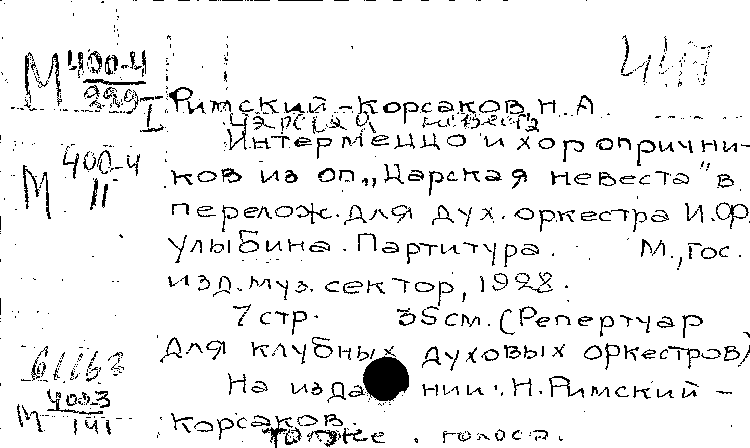 М 400-4
229
I
Римский-Корсаков, Н.А.
Царская невеста
Интермеццо и хор опрични-
М 400-4
II
ков из оп. „Царская невеста" в
перелож. для дух. оркестра И.Ф.
Улыбина. Партитура. М., гос.
изд. муз. сектор, 1928.
7 стр. 35 см. (Репертуар
для клубных духовых оркестров)
61163
На издании: Н. Римский-
М 4023
141
Корсаков.
То же. голоса.